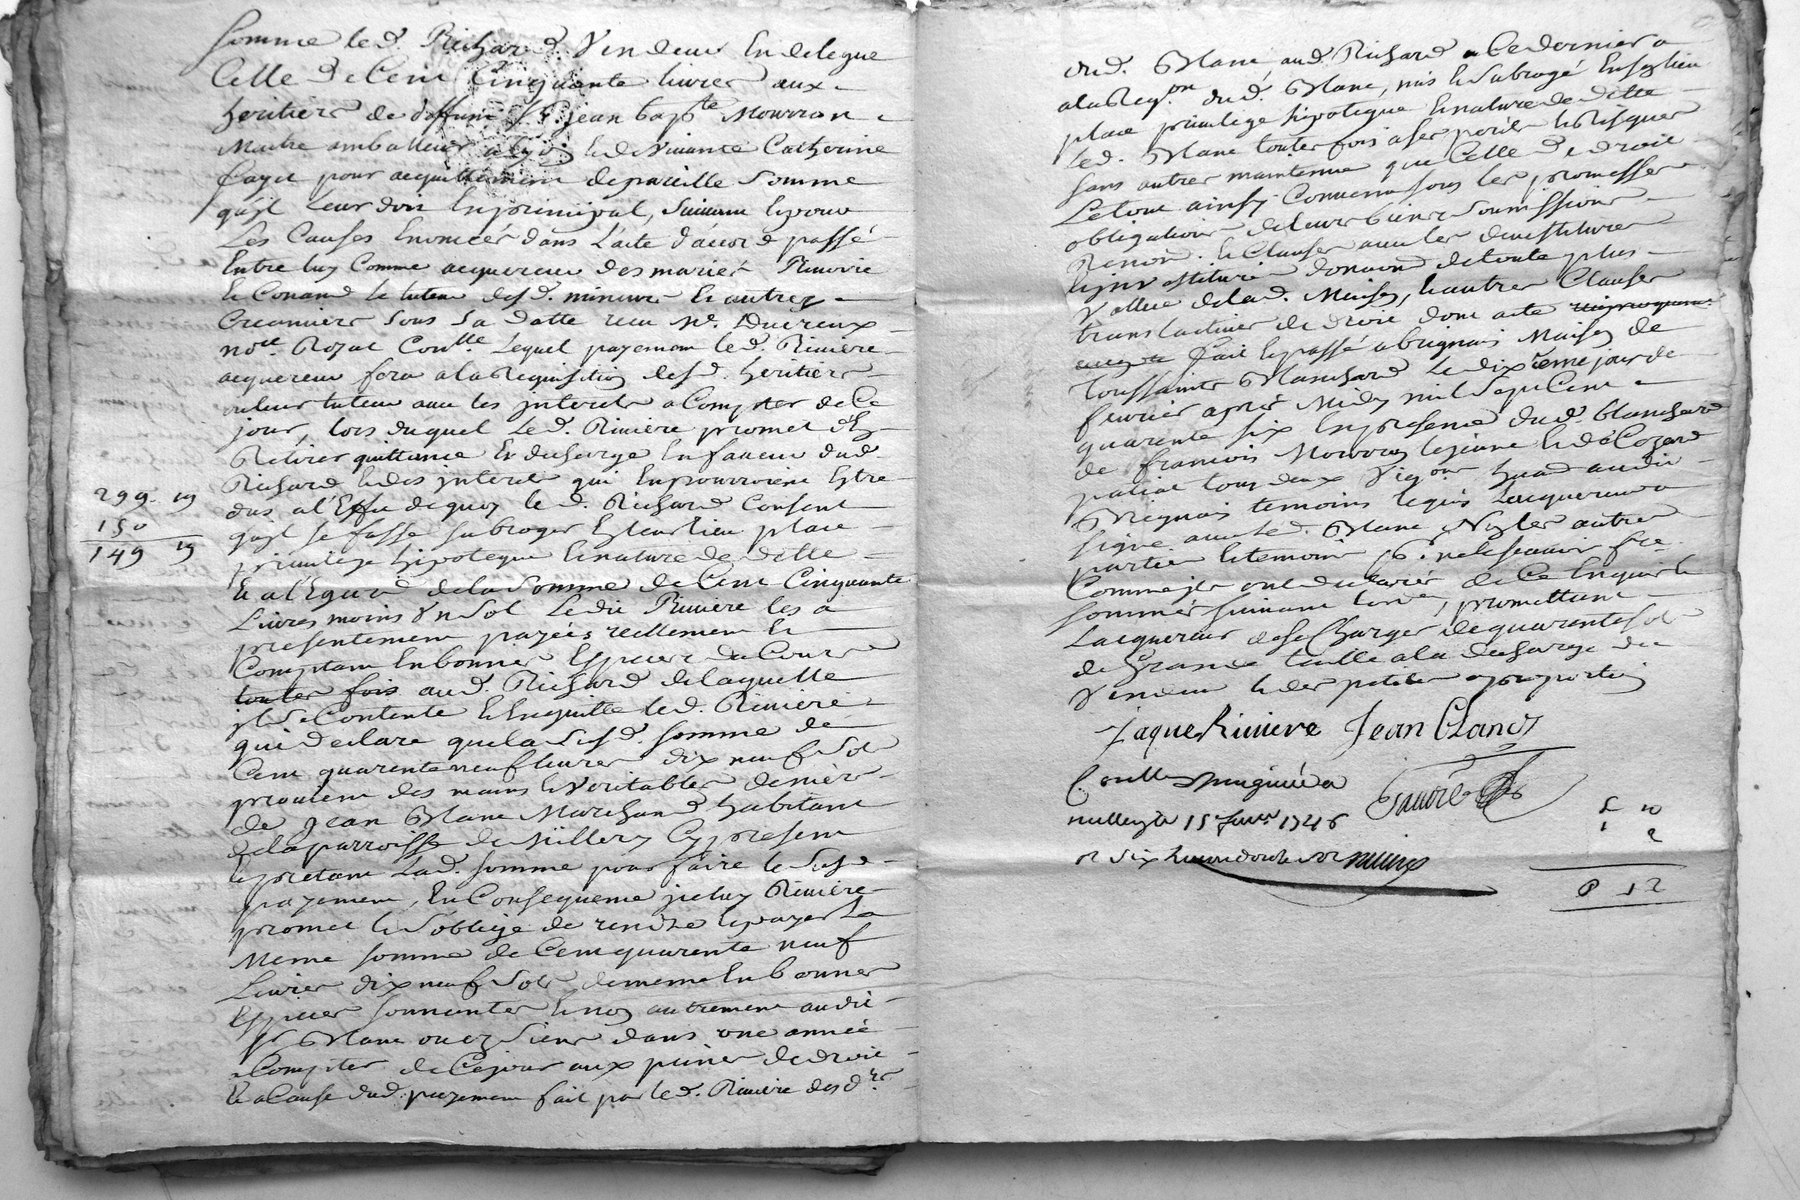 somme led. Richard Vendeur En delegue
Celle de Cent Cinquante livres aux
heritiers de deffunt Sr. jean bapte Mourron
Maitre emballeur a lyon & de vivante Catherine
Cayet pour acquittement depareille Somme
qu'jl leur doit Enprincipal, Suivant & pour
Les Causes Enoncées dans L'acte d'accord passé
Entre luy Comme acquereur des mariés Rivoire
& Conand le tuteur desd. mineurs & autres
Creanciers sous Sa datte reçu Me. Ducreux
nore. Royal Conlle. Lequel payement led. Riviere
acquereur fera a la Requisition desd. heritiers
ou leur tuteur avec les jnterets a Compter de Ce
jour, lors duquel Led. Riviere promet d'En
Retirer quittance & decharge En faveur dud.
Richard & des jnterets qui Enpourroient Estre
dus a l'Effet dequoy led. Richard Consent
qu'jl se fasse subroger En leur lieu place
privilege hipoteque & nature de dette
299. 19
150
149 19
& a l'Egard de la Somme de Cent Cinquante
Livres moins Un Sol Ledit Riviere les a
presentement payées reellement &
Comptant Enbonnes Especes du Cours
toutes fois aud. Richard delaquelle
jl se Contente & Enquitte led. Riviere
qui declare que la Susd. somme de
Cent quarente neuf livres dix neuf Sols
provient des mains & Veritables deniers
de jean Blanc Marchand habitant
de la parroisse de Millery Cy present
& pretant Lad. somme pour faire le Susd.
payement, En Consequence jceluy Riviere
promet & s'oblige de rendre & payer La
Meme somme de Cent quarente neuf
Livres dix neuf Sols demême En bonnes
Especes sonnantes & non autrement audit
Sr Blanc ou es Siens dans une année
a Compter de Cejour aux peines de droit
& a Cause dud. payement fait par led. Riviere des drs
dud. Blanc aud. Richard a Ce dernier a
a la Reqon. dud. Blanc, mis & Subrogé En son lieu
place privilege hipoteque & nature de dette
led. Blanc toutes fois a ses perils & Risques
sans autres maintenue que Celle de droit
Le tout ainsy Convenu sous les promesses
obligations deleurs biens Soumissions
Renon. & Clauses avec les devestitures
& jnvestitures donation detoute plus
Vallue delad. Maison, & autres Clauses
translatives de droit dont acte
fait & passé a brignais Maison de
Toussaints Blanchard Le dixieme jour de
fevrier après Midy mil sept Cent
quarente six En presence dud. blanchard
de francois Mourron lejeune & de Cozard
patiat tous deux Vignons. hant audit
Brignais temoins requis Lacquereur a
signé avec led. Blanc Non les autres
parties & temoins Pr. ne le scavoir faire
Comme jls ont declarés de Ce Enquis &
sommés suivant lord., promettant
Lacquereur dese Charger de quarente sols
de Grande taille a la decharge du
Vendeur & des petites a proportion
Jaque Riviere Jean Blanc
Conlle a
millery le 15 fevr. 1746
R six livres douze sols
5 10
1 2
6 12